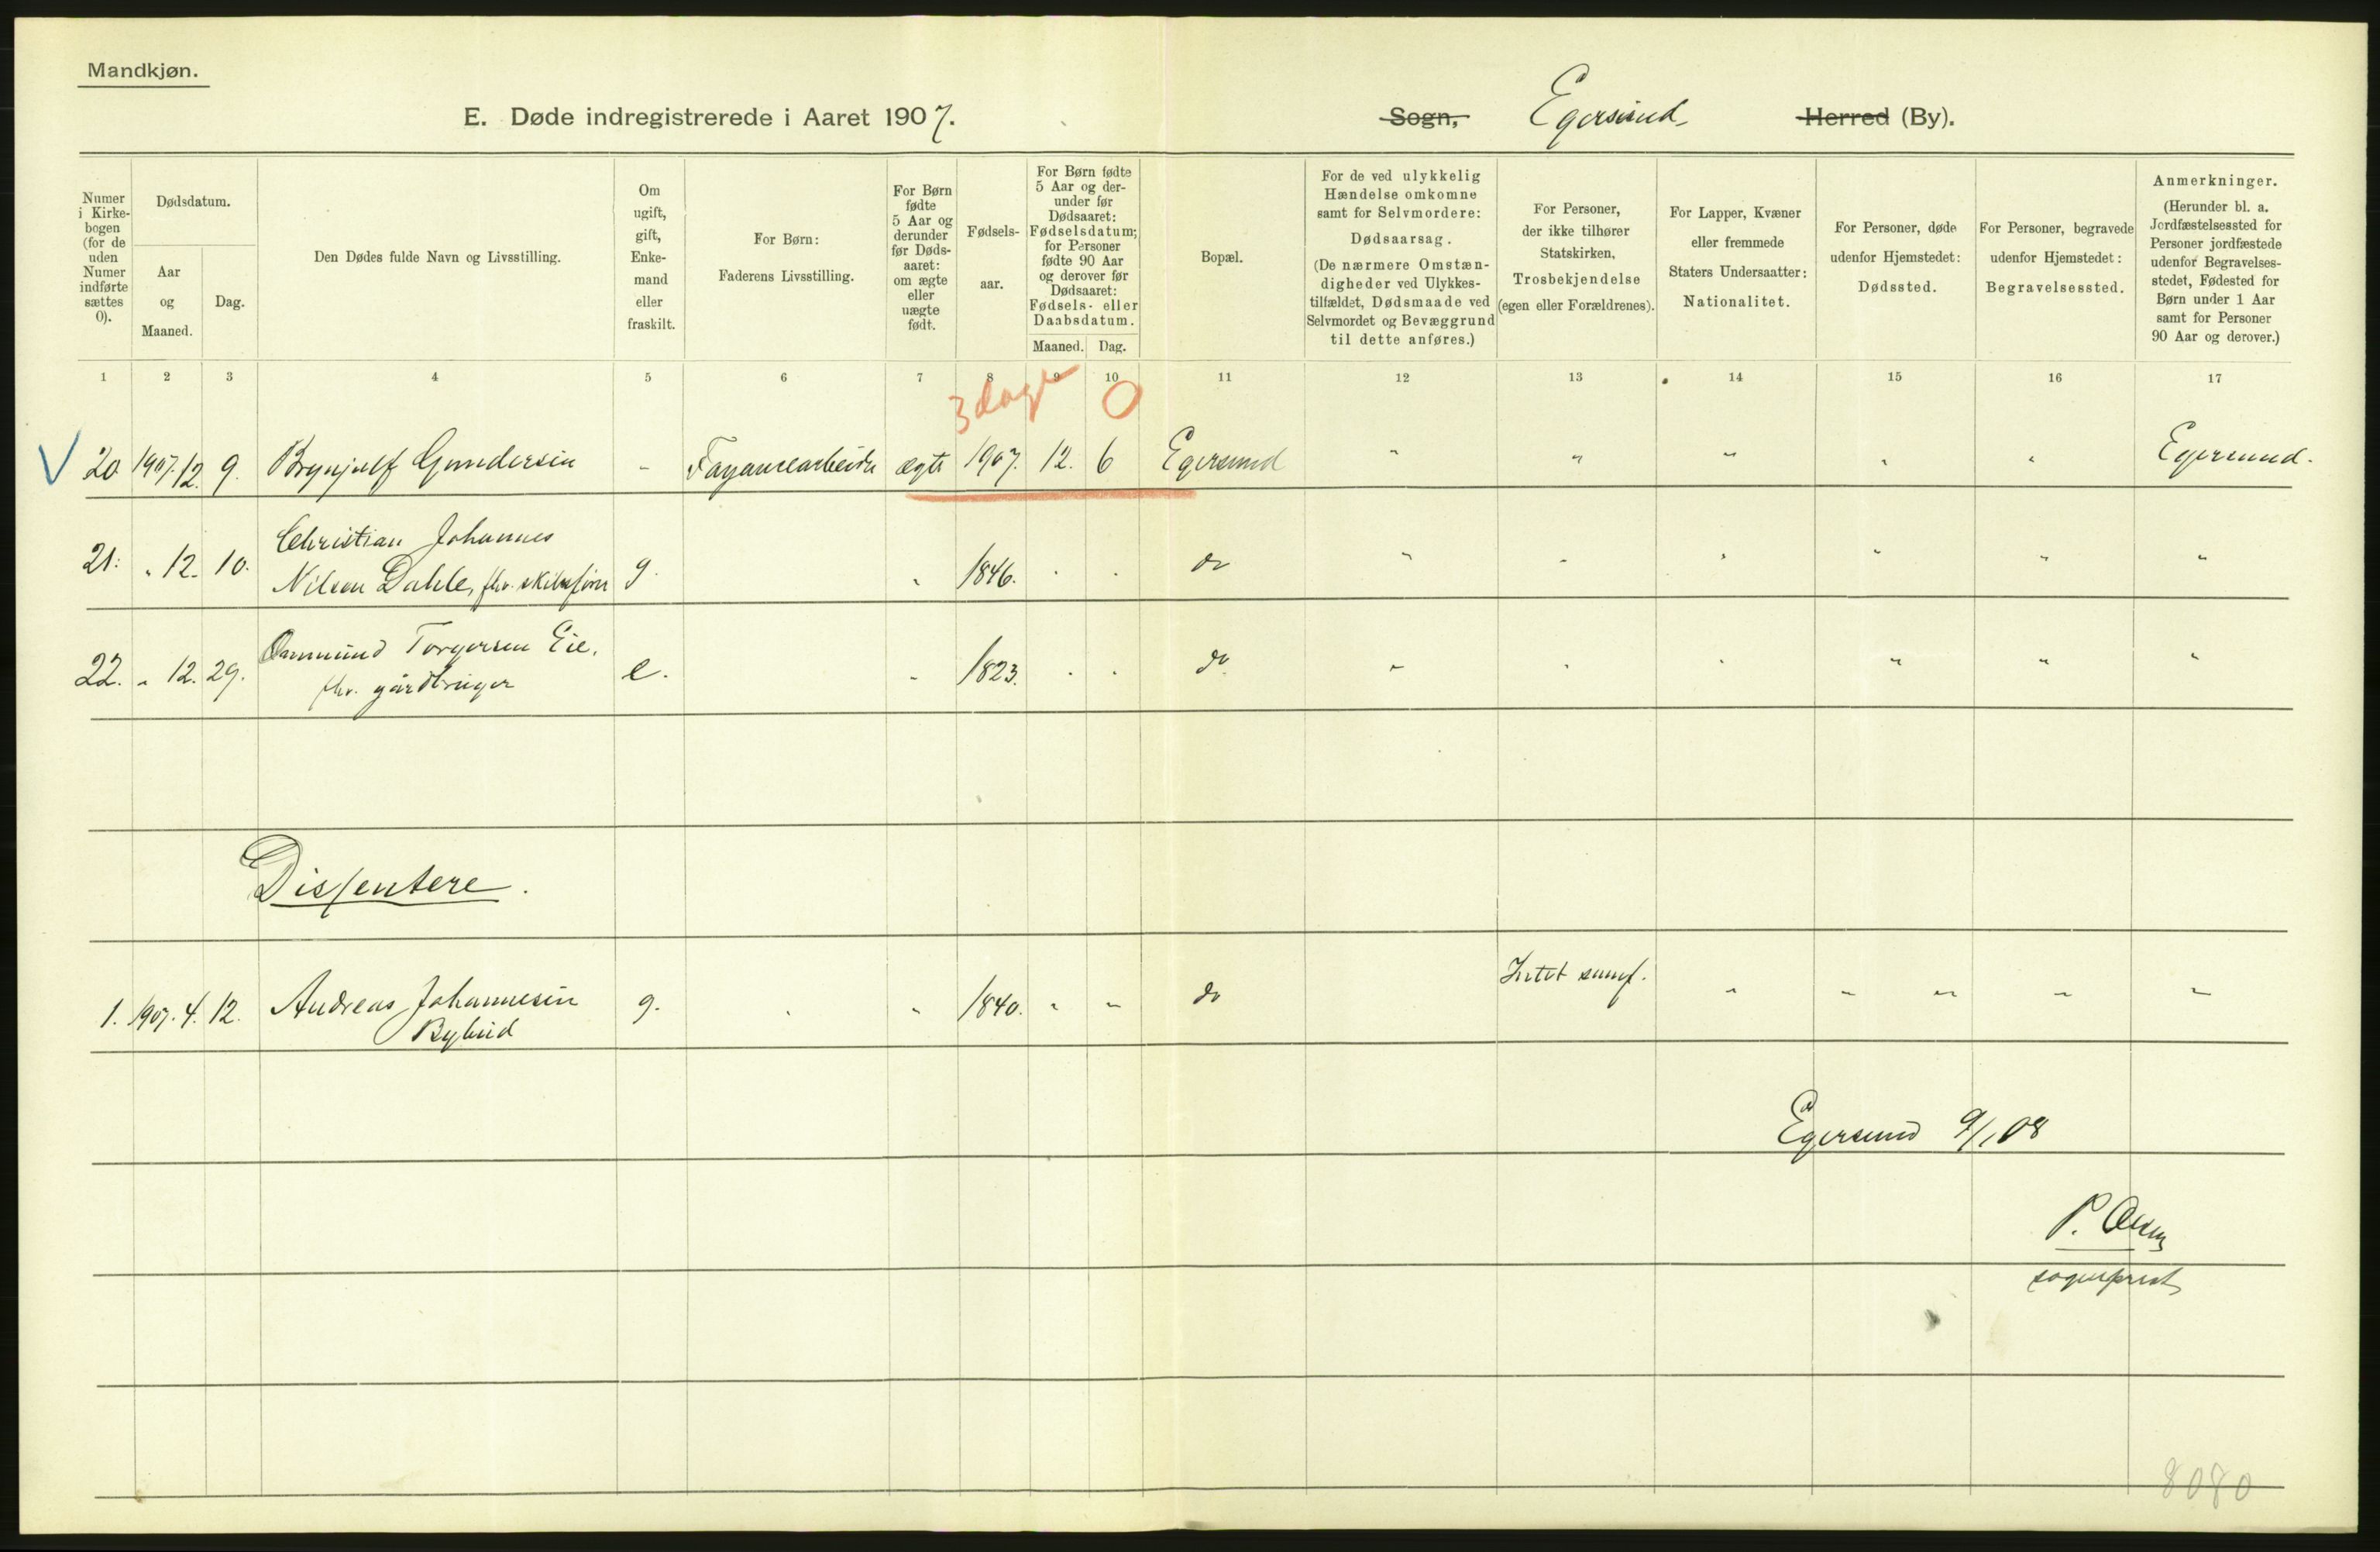 Mandkjøn.
E. Døde indregistrerede i Aaret 1907.
Sogn, Egersund Herred (By).
Numer i Kirke-bogen (for de uden Numer indførte sættes 0).
Dødsdatum.
Aar og Maaned.
Dag.
Den Dødes fulde Navn og Livsstilling.
Om ugift, gift, Enke-mand eller fraskilt.
For Børn: Faderens Livsstilling.
For Børn fødte 5 Aar og derunder før Døds-aaret: om ægte eller uægte født.
Fødsels-aar.
For Børn fødte 5 Aar og der-under før Dødsaaret: Fødselsdatum; for Personer fødte 90 Aar og derover før Dødsaaret: Fødsels- eller Daabsdatum.
Maaned. Dag.
Bopæl.
For de ved ulykkelig Hændelse omkomne samt for Selvmordere: Dødsaarsag. (De nærmere Omstæn-digheder ved Ulykkes-tilfældet, Dødsmaade ved Selvmordet og Bevæggrund til dette anføres.)
For Personer, der ikke tilhører Statskirken, Trosbekjendelse (egen eller Forældrenes).
For Lapper, Kvæner eller fremmede Staters Undersaatter: Nationalitet.
For Personer, døde udenfor Hjemstedet: Dødssted.
For Personer, begravede udenfor Hjemstedet: Begravelsessted.
Anmerkninger. (Herunder bl. a. Jordfæstelsessted for Personer jordfæstede udenfor Begravelses-stedet, Fødested for Børn under 1 Aar samt for Personer 90 Aar og derover.)
1 2 3 4 5 6 7 8 9 10 11 12 13 14 15 16 17
3 dage 0
V 20 1907. 12. 9. Brynjulf Gundersen - Fayancearbeider ægte 1907. 12. 6 Egersund " " " " " Egersund.
Christian Johannes
21. " 12. 10. Nilsen Dahle, fhv. skibsfører g. " 1846. " " do " " " " " "
Ommund Torgersen Eie,
22. " 12. 29. fhv. gårdbruger e. " 1823. " " do " " " " " "
Dissentere.
1. 1907. 4. 12. Andreas Johannesen g. " " 1840. " " do Intet samf. " " " " "
Bylund
Egersund 9/1 08
P. Olsen
sogneprest
8080